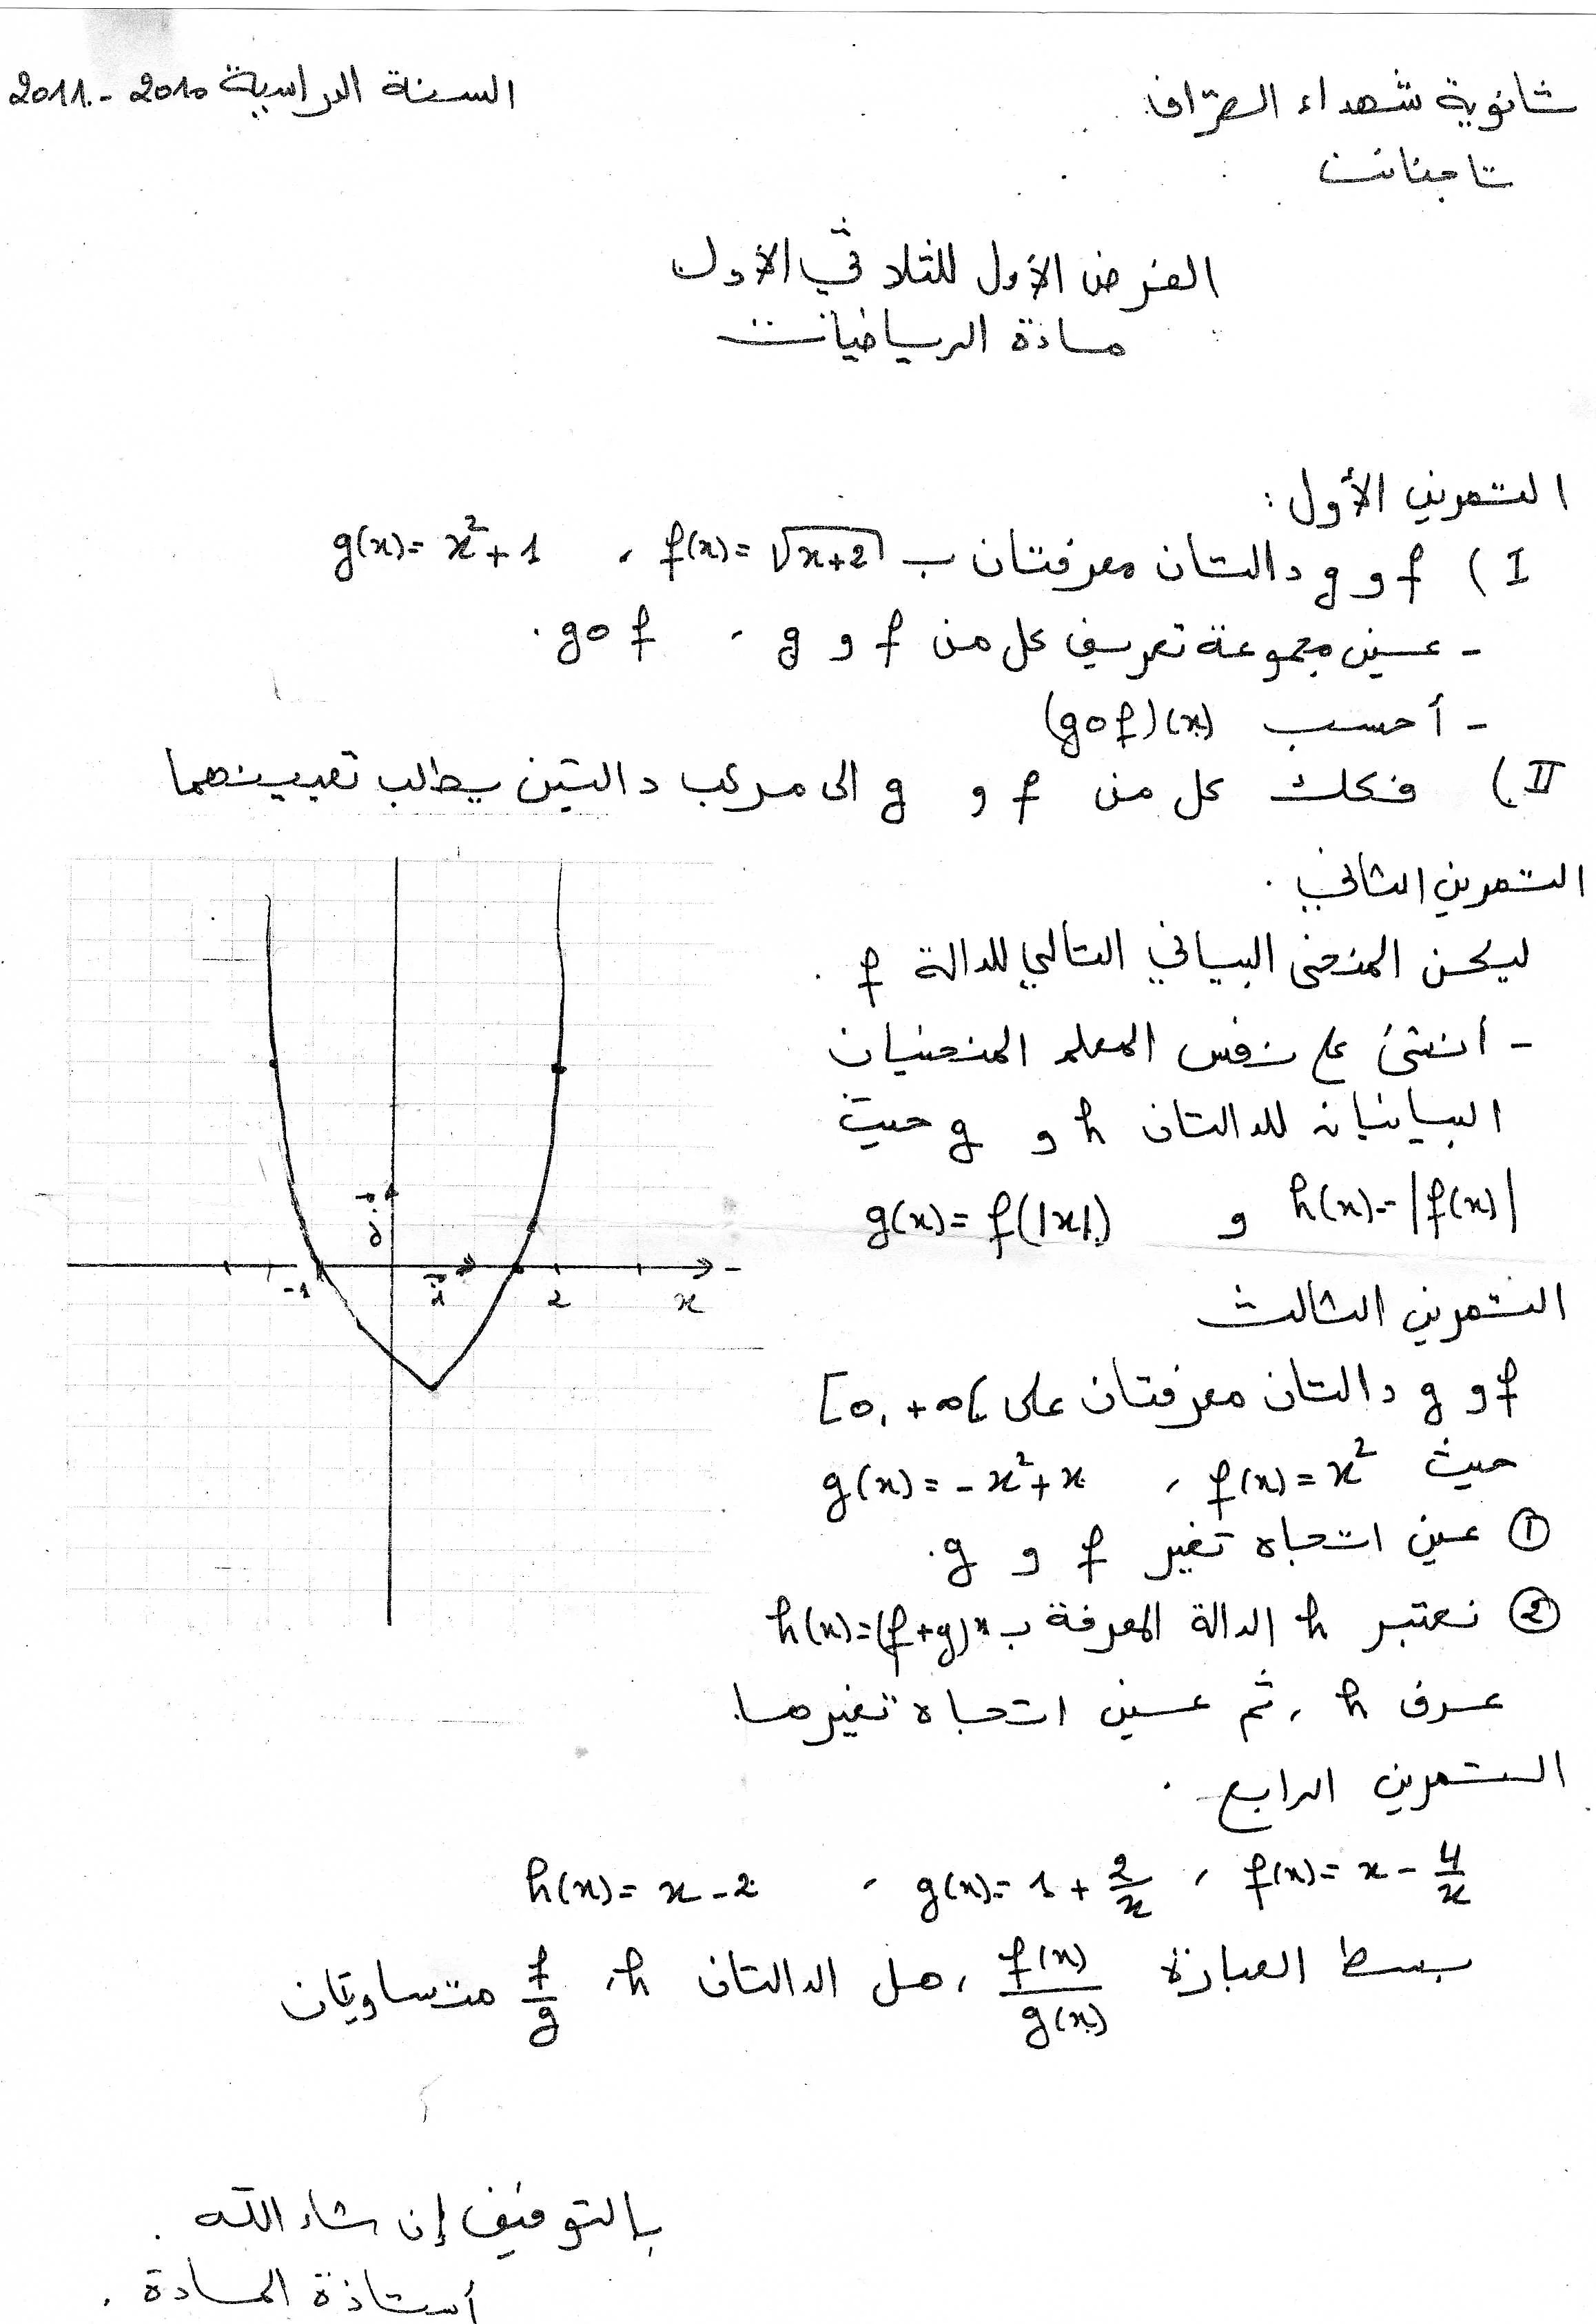 ثانوية شهداء الصراف. السنة الدراسية 2010 - 2011
تاجنانت
الفرض الأول للثلاثي الأول
مادة الرياضيات
التمرين الأول :
I ) f و g دالتان معرفتان ب f(x) = √(x+2) ، g(x) = x² + 1
- عين مجموعة تعريف كل من f و g ، gof .
- أحسب (gof)(x)
II ) فكك كل من f و g الى مركب دالتين يطلب تعيينهما
التمرين الثاني .
ليكن المنحنى البياني التالي للدالة f .
- انشئ على نفس المعلم المنحنيان
البيانيان للدالتان h و g حيث
h(x) = |f(x)| و g(x) = f(|x|)
j
-1 i 2 x
التمرين الثالث
f و g دالتان معرفتان على [0, +∞[
حيث f(x) = x² ، g(x) = -x² + x
① عين اتجاه تغير f و g.
② نعتبر h الدالة المعرفة ب h(x)=(f+g)x
عرف h ، ثم عين اتجاه تغيرها.
التمرين الرابع .
f(x) = x - 4/x ، g(x) = 1 + 2/x ، h(x) = x - 2
بسط العبارة f(x)/g(x) ، هل الدالتان h ، f/g متساويتان
بالتوفيق إن شاء الله .
أستاذة المادة .